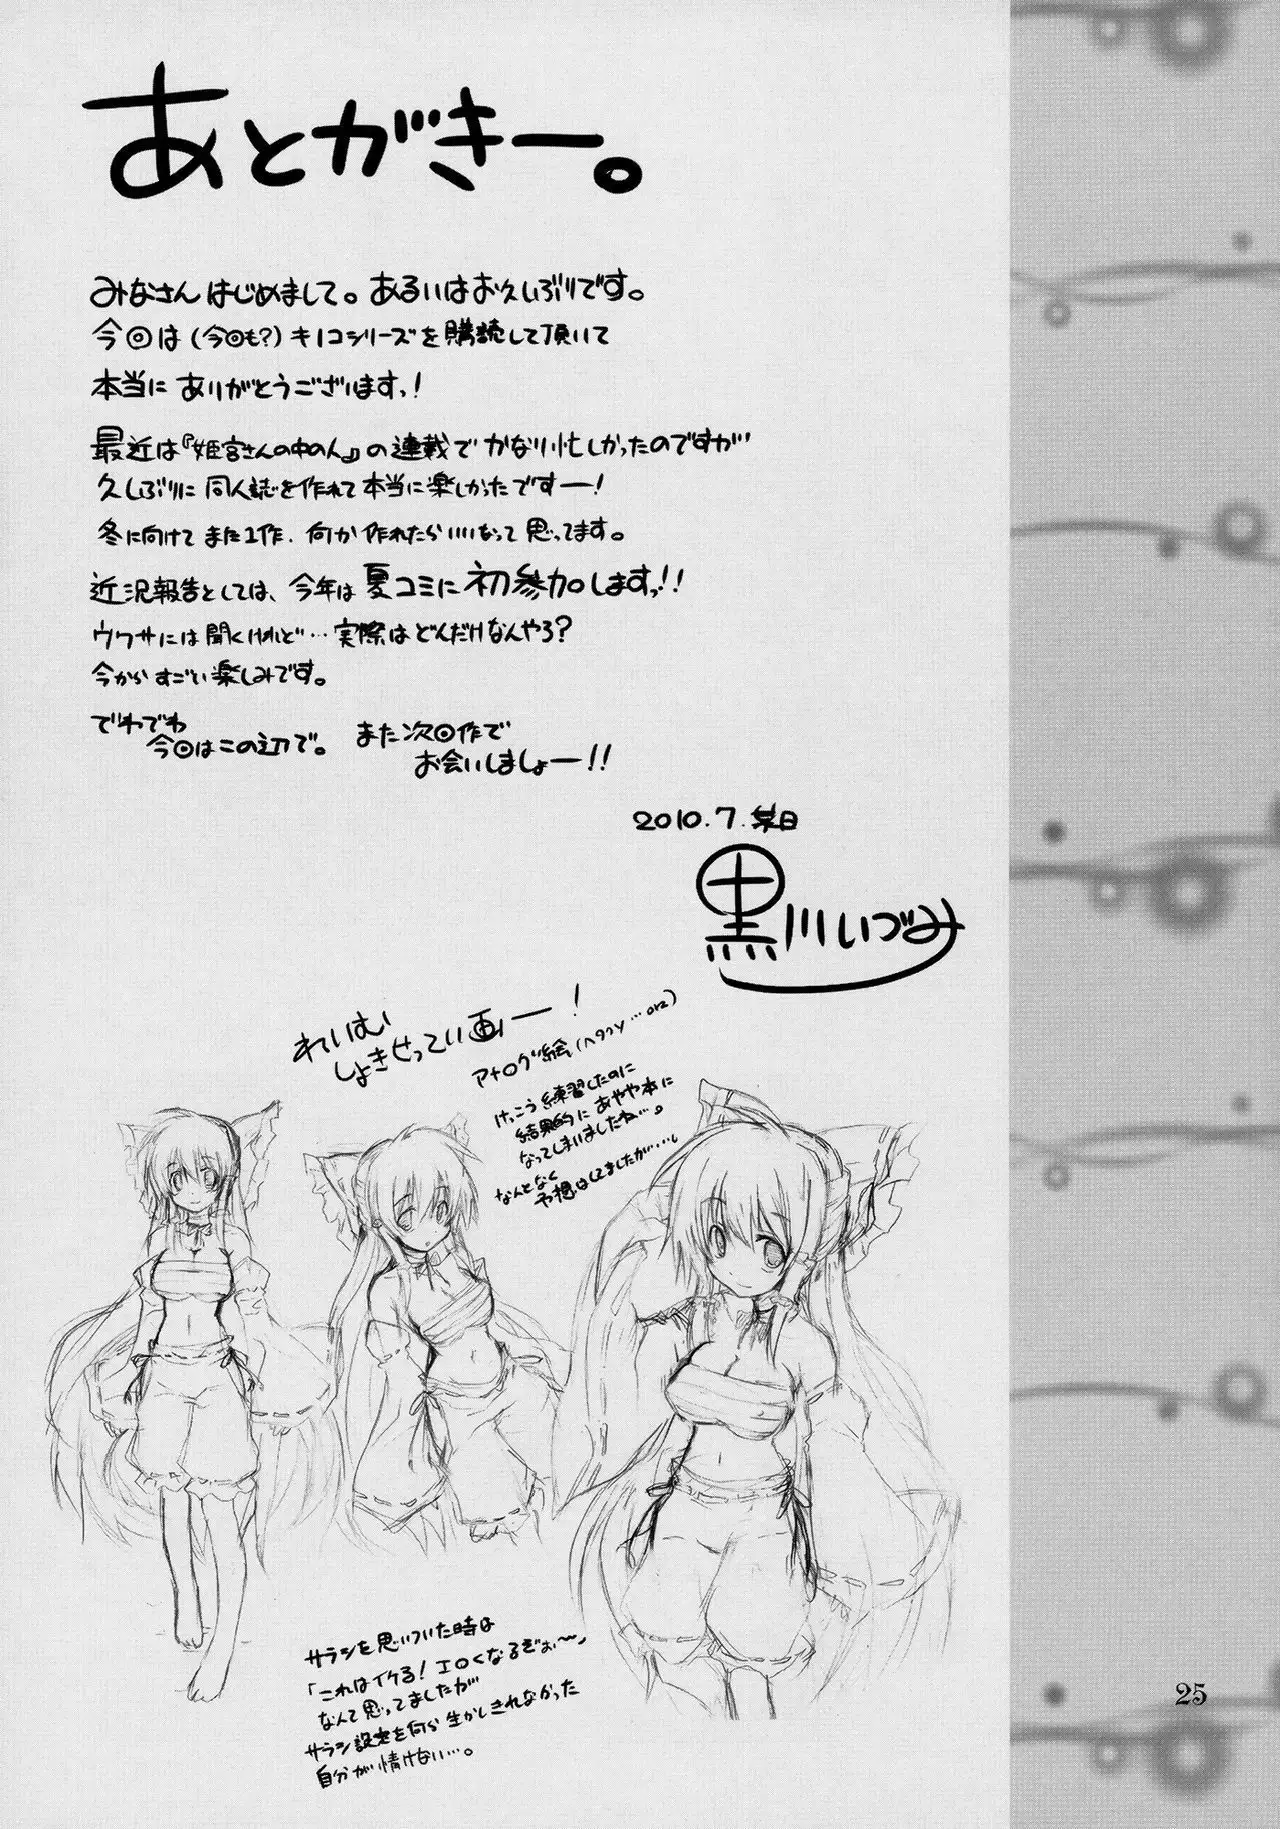 あとがきー。
みなさん はじめまして。あるいはお久しぶりです。
今回は(今回も?)キノコシリーズを購読して頂いて
本当に ありがとうございますっ!
最近は『姫宮さんの中の人』の連載で かなり忙しかったのですが
久しぶりに 同人誌を作れて本当に楽しかったですー!
冬に向けて また1作、何か作れたらいいなって思ってます。
近況報告としては、今年は夏コミに初参加しますっ!!
ウワサには聞くけれど…実際はどんだけなんやろ?
今からすごい楽しみです。
でわでわ
今回はこの辺で。 また次回作で
お会いしましょー!!
2010.7.某日
黒川いづみ
れいむ
しょきせってい画ー!
アナログ絵(ヘタッピ…orz)
けっこう練習したのに
結果的に あやや本に
なってしまいましたね…。
なんとなく
予想はしてましたが…。
サラシを思いついた時は
「これはイケる!エロくなるぞぉ〜」
なんて思ってましたが
サラシ設定を何ら生かしきれなかった
自分が情けない…。
25